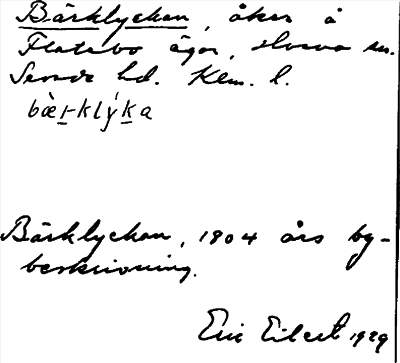 Bärklyckan, åker å
Flatebo ägor, Älvsva sn.
Sevede hd. Klm. l.
bæ̀r-klýka
Bärklyckan, 1904 års by-
beskrivning.
Eric Eilert 1929